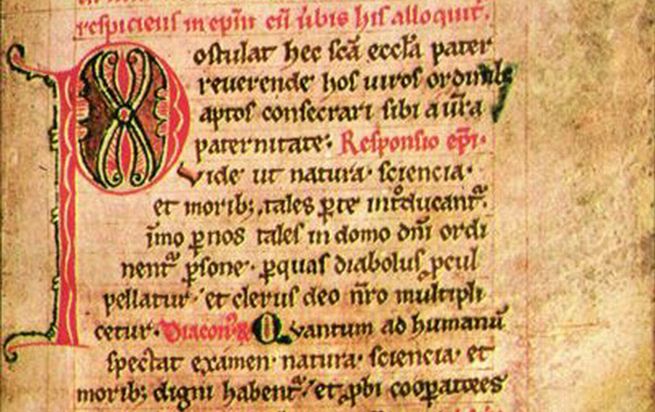 respiciens in ep̄m cū ūbis his alloquit᷑.
Postulat hec sc̄a eccl̄a pater
reuerende hos uiros ordinib;
aptos consecrari sibi a ūra
paternitate· Responsio ep̄i·
Vide ut natura· sciencia·
et morib; tales ꝑ te introducant᷑·
īmo ꝑ nos tales in domo dn̄i ordi
nent᷑ ꝑsone· ꝑ quas diabolus ꝓcul
pellatur· et clerus deo n̄ro multipli
cetur· Diacon᷒ Quantum ad humanū
spectat examen· natura· sciencia· et
morib; digni habent᷑· et ꝓbi cooꝑatores